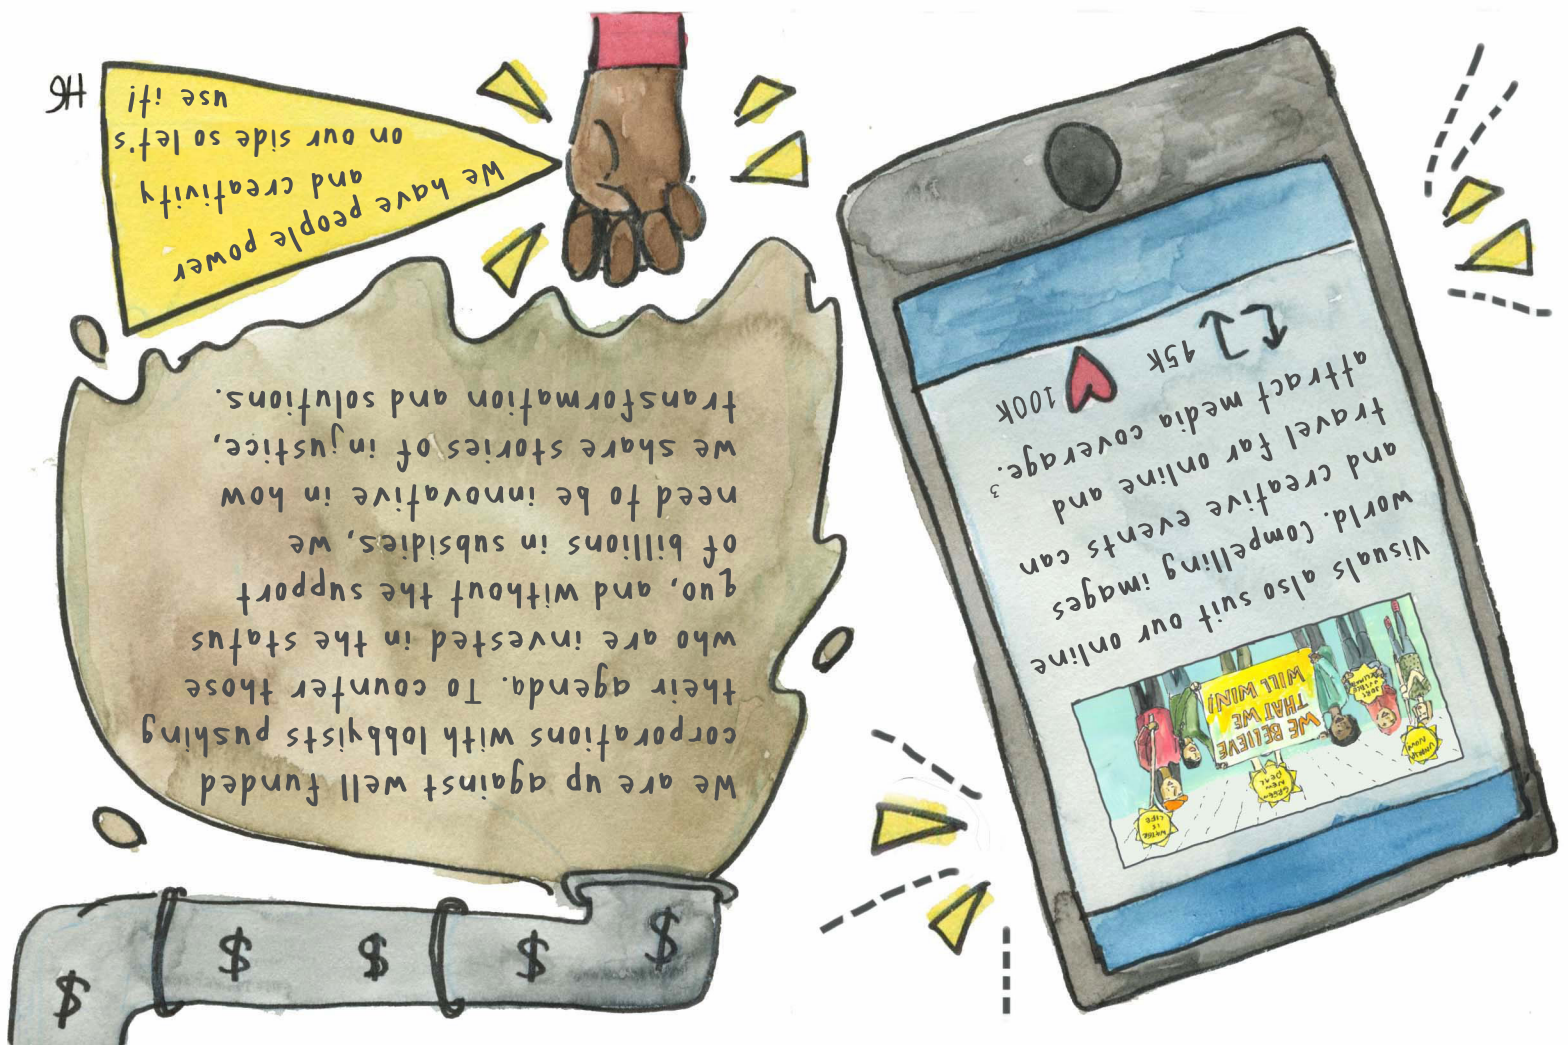 NOW
GREEN
NEW
DEAL
WATER
IS
LIFE
WE BELIEVE
THAT WE
WILL WIN!
Visuals also suit our online
world. Compelling images
and creative events can
travel far online and
attract media coverage.³
45K 100K
$ $ $ $ $
We are up against well funded
corporations with lobbyists pushing
their agenda. To counter those
who are invested in the status
quo, and without the support
of billions in subsidies, we
need to be innovative in how
we share stories of injustice,
transformation and solutions.
We have people power
and creativity
on our side so let's
use it!